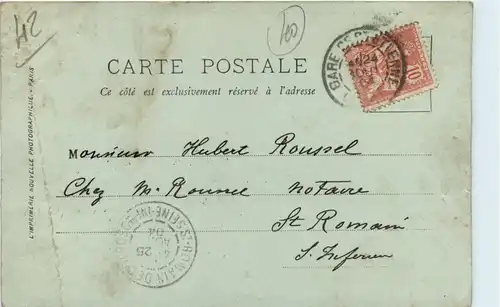 42
100
CARTE POSTALE
Ce côté est exclusivement réservé à l'adresse
GARE DE
10
L'IMPRIMERIE NOUVELLE PHOTOGRAPHIQUE - PARIS
Monsieur Hubert Roussel
Chez M. Rounce Notaire
St Romain
S. Inferieu
25
04